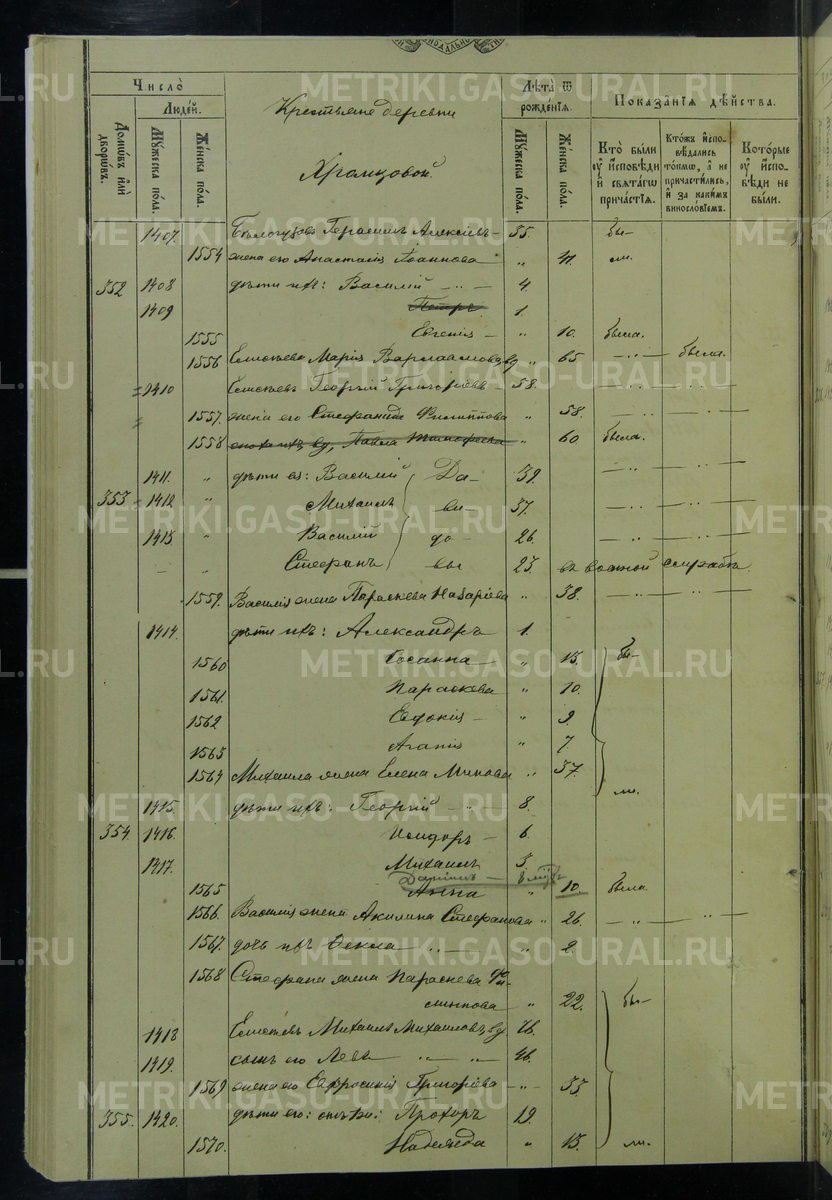 Число̀
Люде́й.
Домѡ́въ и҆лѝ дворѡ́въ.
Му́жеска по́ла.
Же́нска по́ла.
Крестьяне деревни
Храмцовой.
Лѣ́та ѿ рожде́нїѧ.
Му́жеска по́ла.
Же́нска по́ла.
Показа́нїѧ дѣ́йства.
Кто̀ бы́ли ᲂу҆ и҆сповѣди и҆ свѧта́гѡ прича́стїѧ.
Кто́жъ и҆сповѣ́дались то́кмѡ, а҆ не причасти́лись, и҆ за каки́мъ винослові́емъ.
Кото́рые ᲂу҆ и҆сповѣди не бы́ли.
1407. Бѣлогузовъ Герасимъ Алексіевъ — 55. бы—
1554 жена его Анастасія Іоаннова „ 41. ли.
352 1408 дѣти ихъ: Василій — 4
1409 Петръ 1.
1555 Евгенія — „ 10. была.
1556 Елисѣева Марія Варлаамова, вд „ 65. — была.
1410 Елисѣевъ Георгій Григоріевъ — 58.
1557. жена его Стефанида Филиппова „ 58.
1558 Павла „ 60 была.
1411. „ дѣти ея: Василій Да— 39.
353 1412 „ Михаилъ ви— 37.
1413 „ Василій до— 26.
— „ Стефанъ вы 23. въ военной службѣ.
1559. Василія жена Параскева Назаріева „ 38.
1414. дѣти ихъ: Александръ 1.
1560 Сосанна „ 13. бы—
1561. Параскева „ 10.
1562 Евдокія — „ 9.
1563 Агапія „ 7
1564 Михаила жена Елена Минова „ 37. ли.
1415. дѣти ихъ: Георгій 8.
354. 1416. Исидоръ — 6.
1417. Михаилъ 3.
Даніилъ —
1565 Анна „ 10. была.
1566. Василія жена Акилина Стефанова „ 26.
1567. дочь ихъ Ѳекла „ 2.
1568 Стефана жена Параскева Фи—
липпова „ 22. бы—
1418 Елисѣевъ Михаилъ Михаиловъ, вд 76.
1419. сынъ его Левъ 46.
1569 жена его Евфросинія Григоріева — 33.
355. 1420. дѣти его: Прохоръ 19.
1570. Надежда „ 13. ли.
METRIKI.GASO-URAL.RU